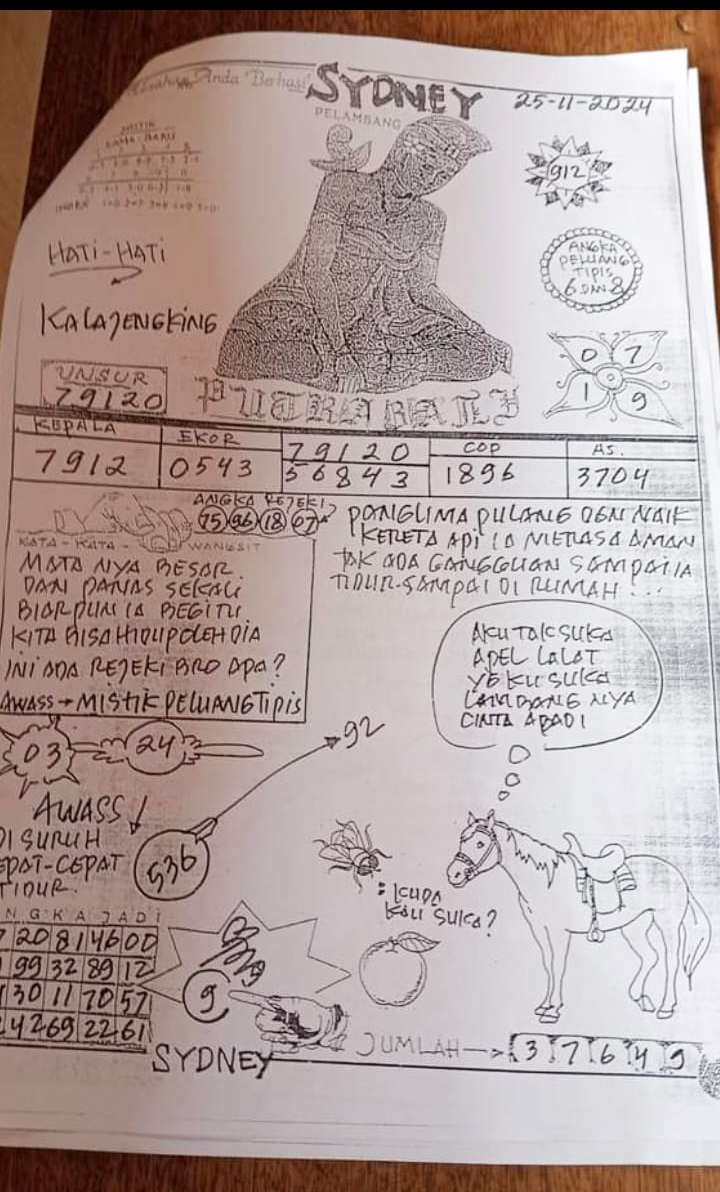 Anda Berhasil
SYDNEY
25-11-2024
PELAMBANG
912
HATI-HATI
ANGKA
PELUANG
TIPIS
6 DAN 8
KALAJENGKING
0 7
1 9
UNSUR
79120
PUTRA BALI
KEPALA
EKOR
79120
COP
AS.
7912
0543
56843
1896
3704
ANGKA REJEKI
75 96 18 07
KATA-KATA-WANGSIT
PANGLIMA PULANG DGN NAIK
KERETA API IA MERASA AMAN
TAK ADA GANGGUAN SAMPAI IA
TIDUR-SAMPAI DI RUMAH...
MATA NYA BESAR
DAN PANAS SEKALI
BIARPUN IA BEGITU
KITA BISA HIDUP OLEH DIA
INI ADA REJEKI BRO APA?
AWASS → MISTIK PELUANG TIPIS
AKU TAK SUKA
APEL LALAT
YG KU SUKA
LAMBANG NYA
CINTA ABADI
03
24
92
AWASS
DI SURUH
EPAT-CEPAT
TIDUR.
536
: KUDA
KAU SUKA?
NGKA JADI
7 20 81 46 00
99 32 89 12
30 11 70 57
24 26 69 22 61
9
SYDNEY
JUMLAH → 3 7 6 4 9